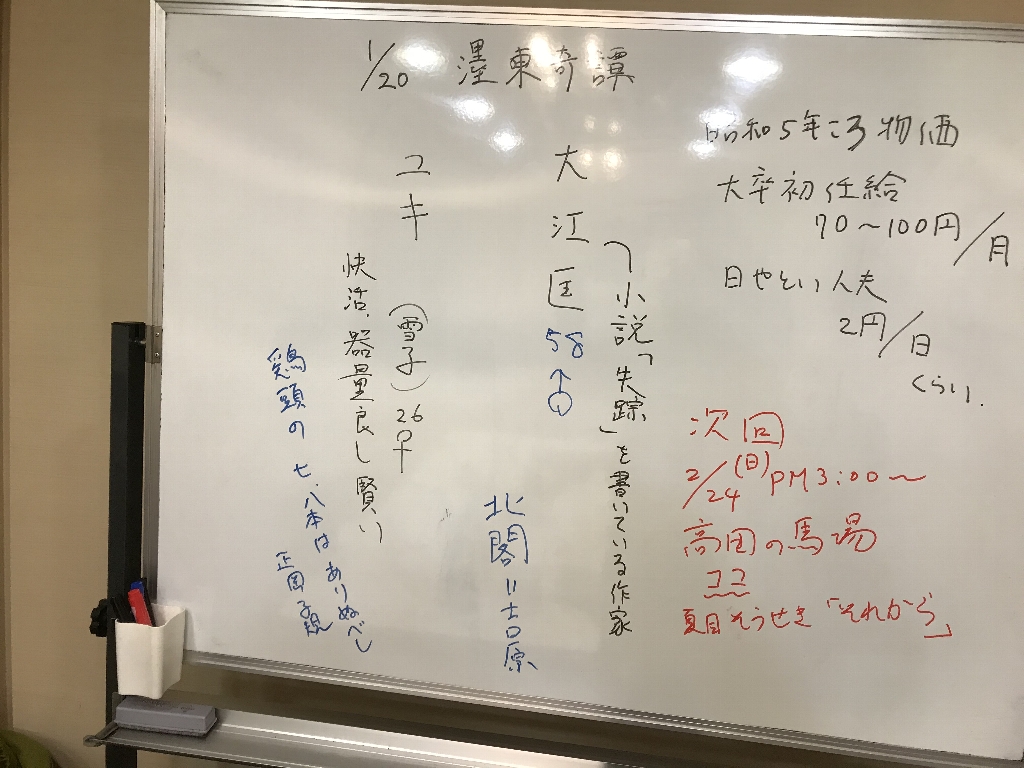 1/20 濹東奇譚
昭和5年ころ物価
大卒初任給
70～100円/月
日やとい人夫
2円/日
くらい.
次回
2/24(日)PM3:00～
高田の馬場
ココ
夏目そうせき「それから」
大江匡 58 ♂
小説「失踪」を書いている作家
北閣=吉原
ユキ(雪子)26♀
快活、器量良し賢い
鶏頭の七、八本はありぬべし
正岡子規